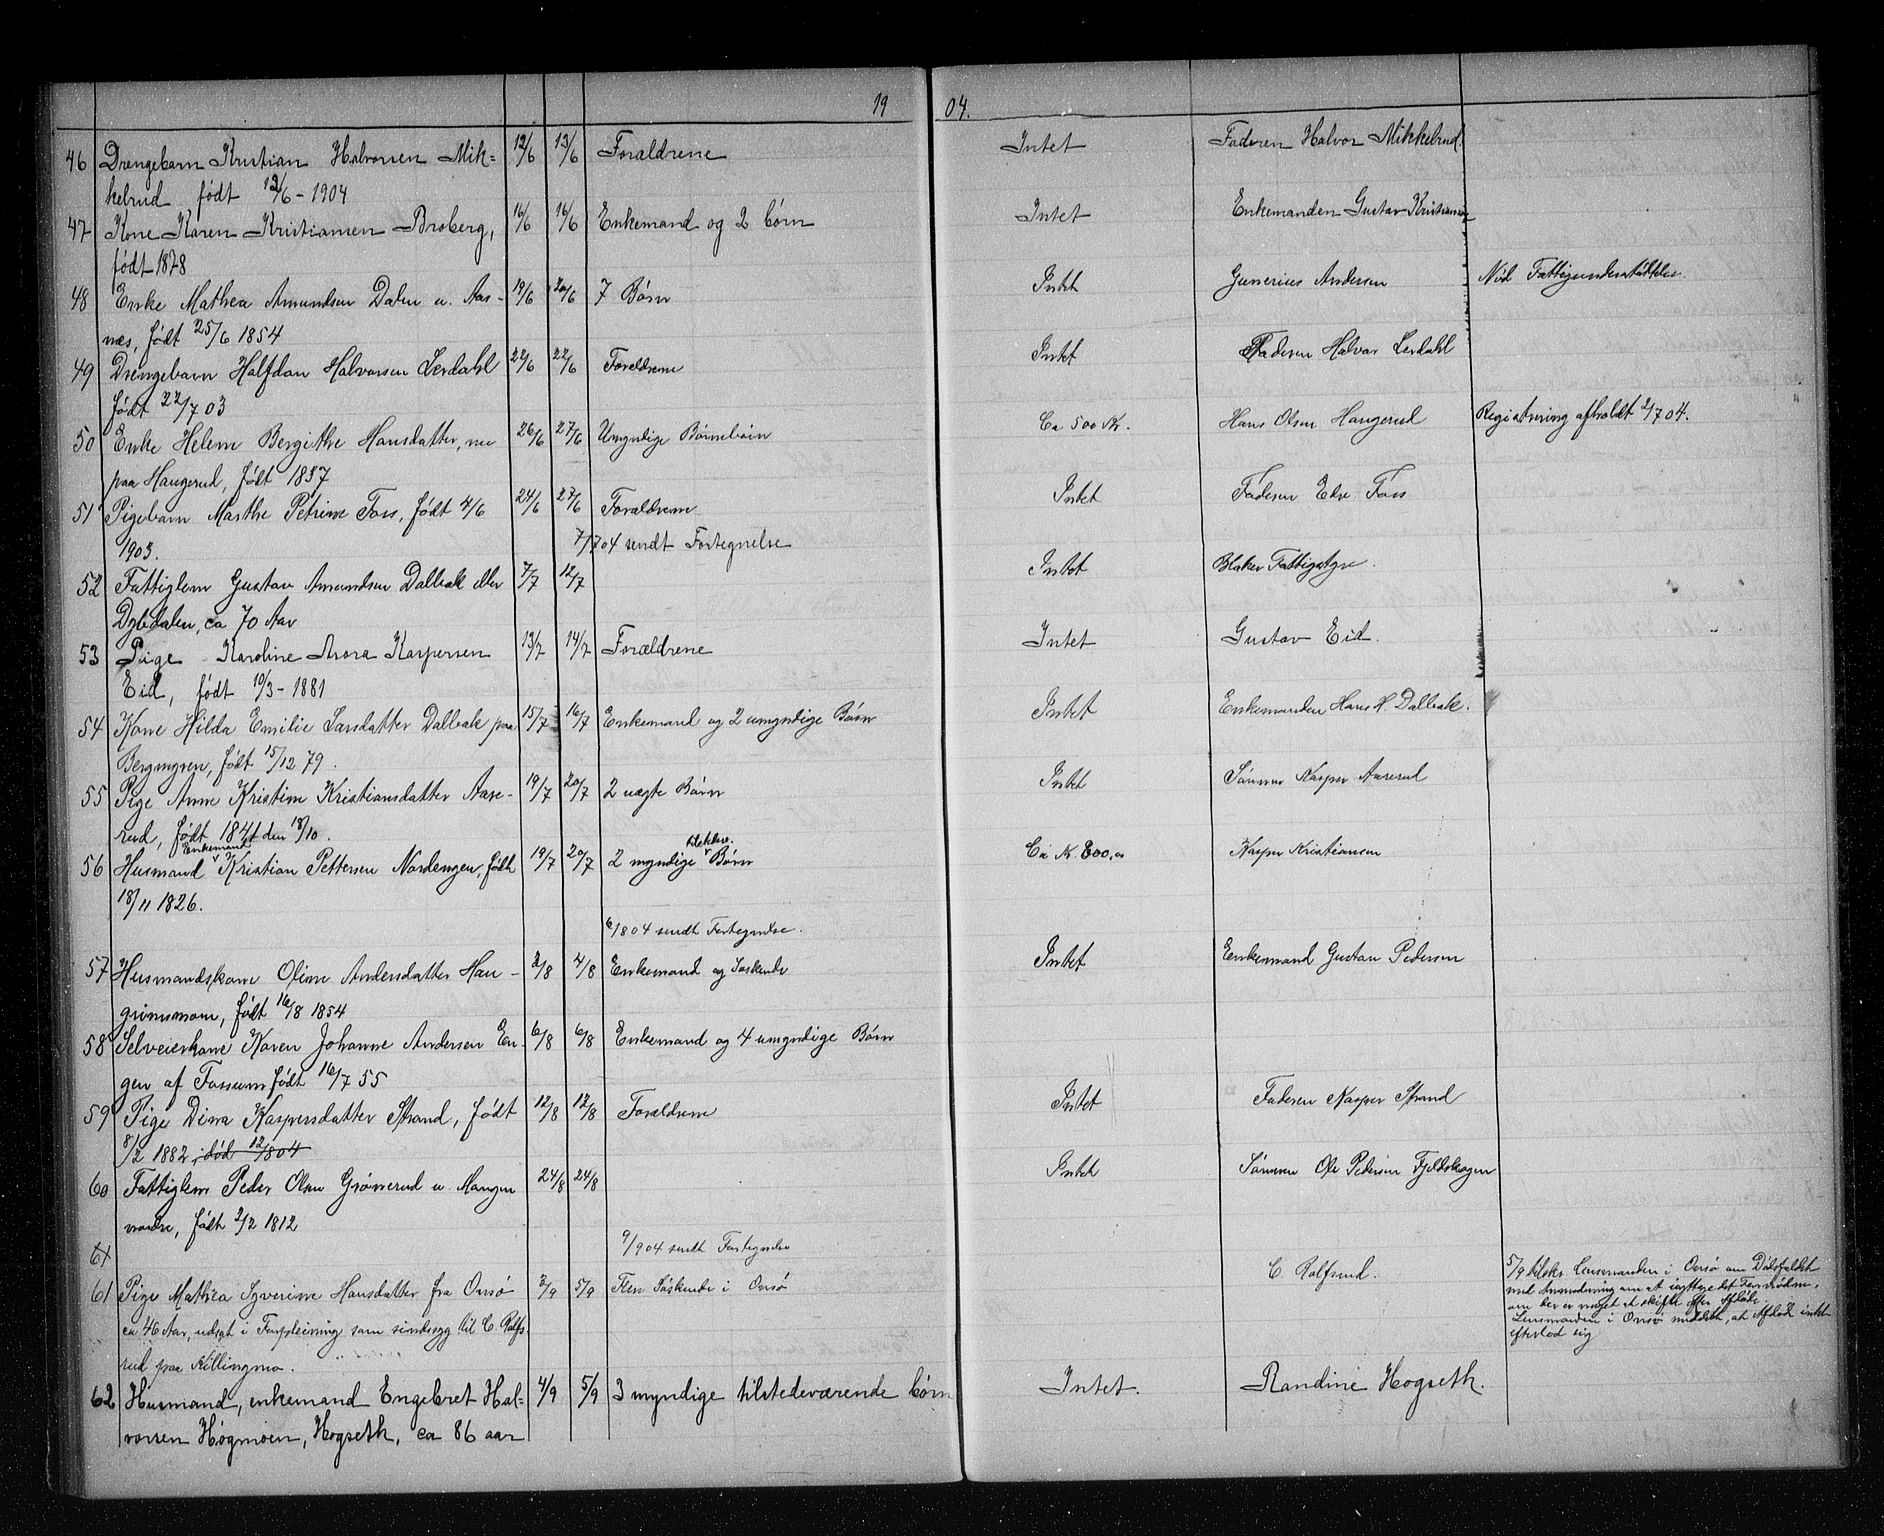 19 04.
46 Drengebarn Kristian Halvorsen Mik- 12/6 13/6 Forældrene Intet Faderen Halvor Mikkelrud.
kelrud født 12/6 - 1904
47 Kone Karen Kristiansen Broberg, 16/6 16/6 Enkemand og 2 børn Intet Enkemanden Gustav Kristiansen
født 1878
48 Enke Mathea Amundsen Dalen u. Aas- 19/6 20/6 7 Børn Intet Gunerius Andersen Nød Fattigunderstøttelse.
næs, født 25/6 1854
49 Drengebarn Halfdan Halvorsen Lerdahl 22/6 22/6 Forældrene Intet Faderen Halvor Lerdahl
født 22/7 03
50 Enke Helene Bergithe Hansdatter, nu 26/6 27/6 Umyndige Børnebørn Ca 500 Kr. Hans Olsen Haugerud Registrering afholdt 2/7 04.
paa Haugerud, født 1837
51 Pigebarn Marthe Petrine Foss, født 4/6 24/6 27/6 Forældrene Intet Faderen Foss
1903.
7/7 04 sendt Fortegnelse
52 Fattiglem Gustav Amundsen Dalbak eller 7/7 12/7 Intet Blaker Fattigstyre.
Dybedalen, ca 70 Aar
53 Pige Karoline Arora Kaspersen 13/7 14/7 Forældrene Intet Gustav Eid.
Eid, født 10/3 - 1881
54 Kone Hilda Emilie Larsdatter Dalbak paa 15/7 16/7 Enkemand og 2 umyndige Børn Intet Enkemanden Hans H. Dalbak.
Bergmyren, født 15/12 79.
55 Pige Anne Kristine Kristiansdatter Aase- 19/7 20/7 2 uægte Børn Intet Sønnen Kasper Aaserud
rud, født 1841 den 18/10.
Enkemand
56 Husmand Kristian Pettersen Nordengen, født 19/7 20/7 2 myndige Børn Ca K. 800,00 Kasper Kristiansen
18/11 1826.
6/8 04 sendt Fortegnelse.
57 Husmandskone Oline Andersdatter Hau- 3/8 4/8 Enkemand og Søskende Intet Enkemand Gustav Pedersen
grimsmoen, født 16/8 1854
58 Selveierkone Karen Johanne Andersen En- 6/8 6/8 Enkemand og 4 umyndige Børn
gen af Fossum født 16/7 55
59 Pige Dina Kaspersdatter Strand, født 12/8 12/8 Forældrene Intet Faderen Kasper Strand
8/2 1882, død 12/8 04
60 Fattiglem Peder Olsen Grønnerud u. Mangen 24/8 24/8 Intet Sønnen Ole Pedersen Fjeldskogen
nordre, født 2/2 1812
61
9/9 04 sendt Fortegnelse
61 Pige Mathea Syverine Hansdatter fra Onsø 3/9 5/9 Flere Søskende i Onsø C. Rolfsrud. 5/9 tilskr. Lensmanden i Onsø om Dødsfaldet
ca 46 Aar, udsat i Forpleining som sindssyg til C. Rolfs- med Anmodning om at iagttage det Fornødne,
om der er noget at skifte efter Afdøde.
rud paa Killingmo. Lensmanden i Onsø meddelt, at Afdøde intet
efterlod sig
62 Husmand, enkemand Engebret Hal- 4/9 5/9 3 myndige tilstedeværende børn Intet. Randine Hogseth.
vorsen Høgmoen, Hogseth, ca 86 aar